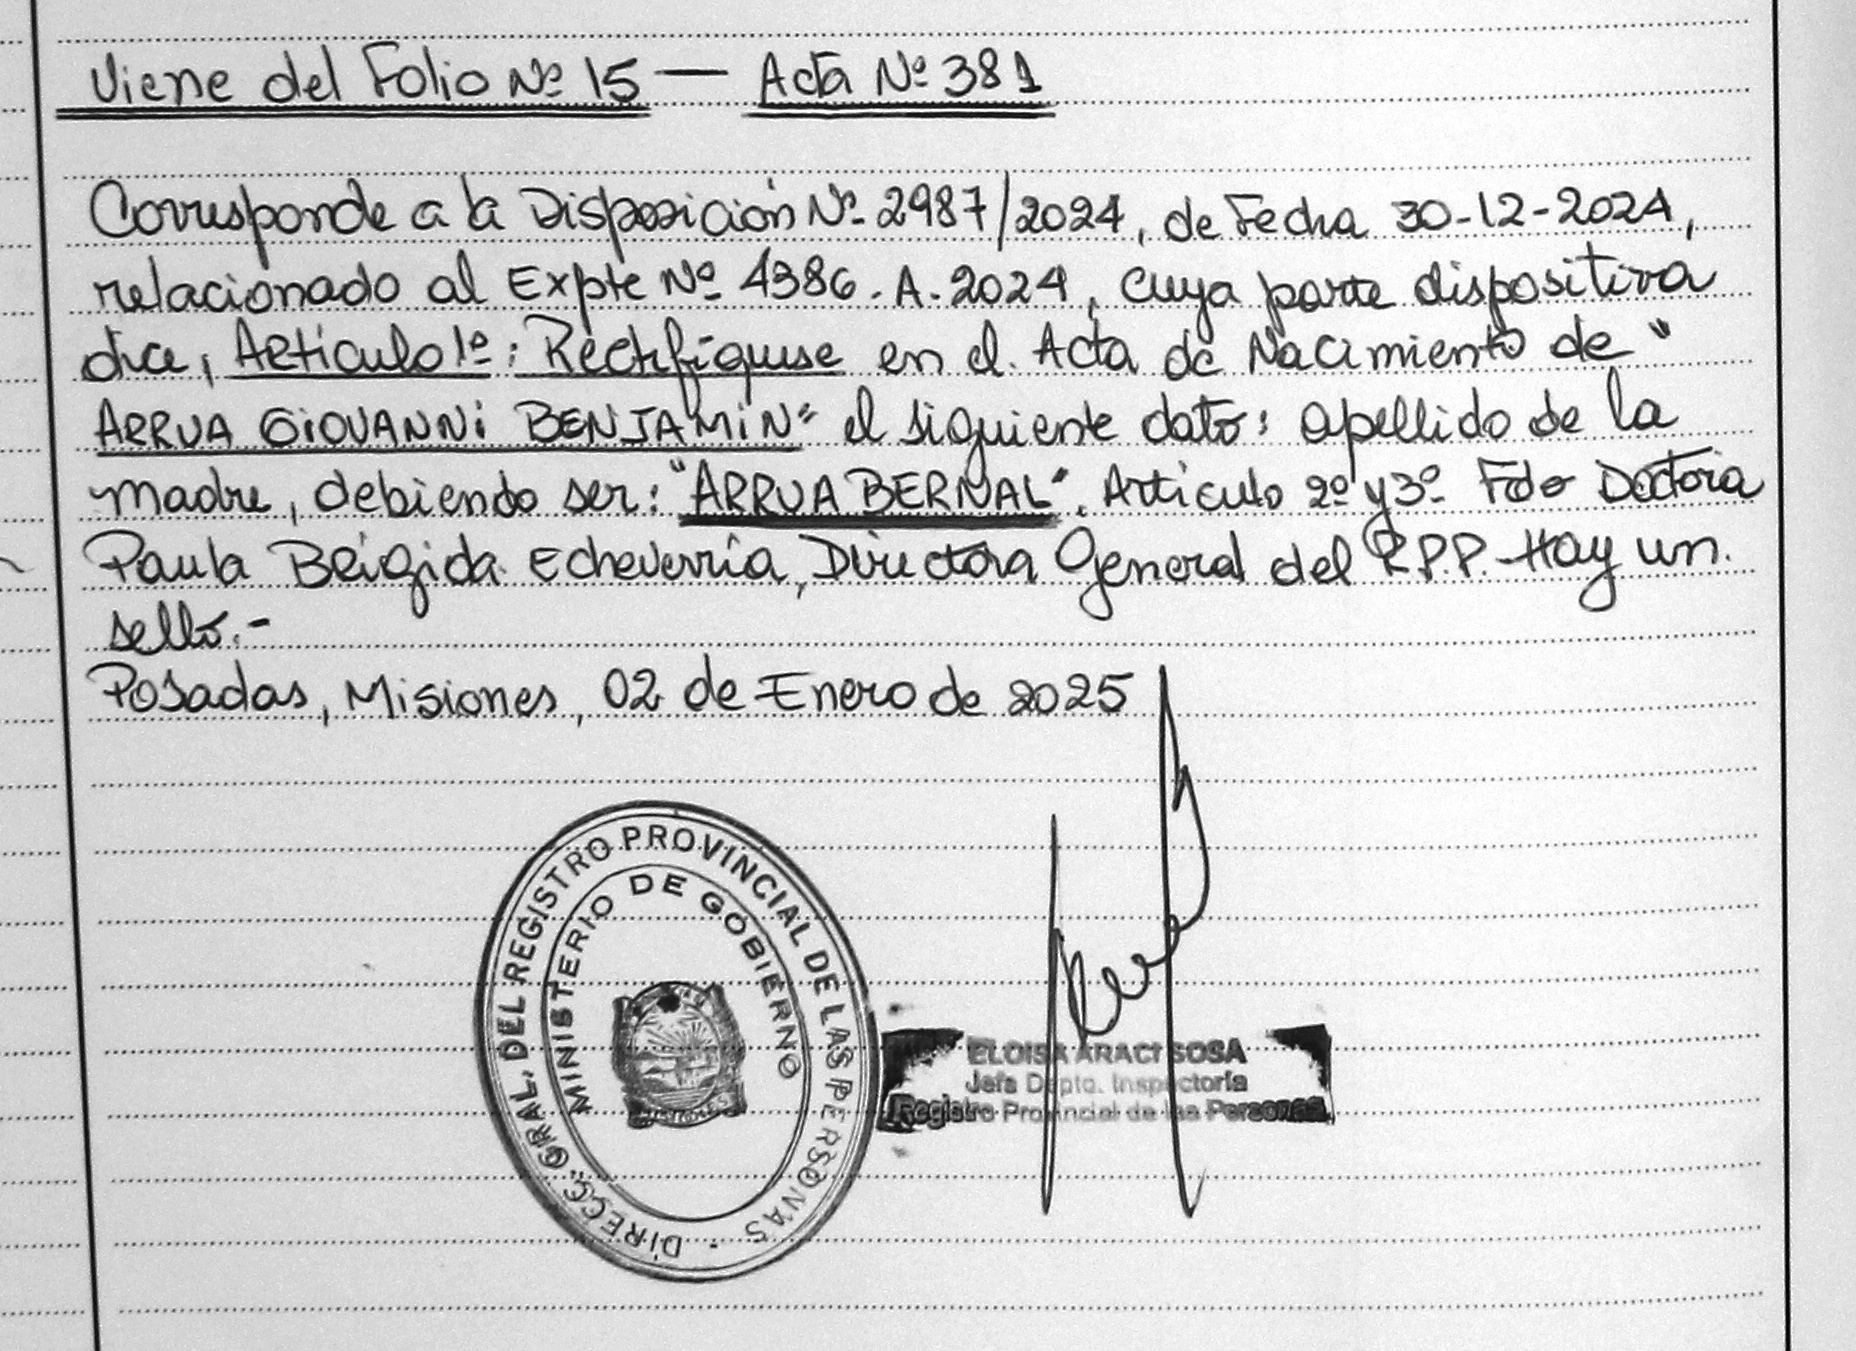 Viene del Folio Nº 15 — Acta Nº 381
Corresponde a la Disposición Nº 2987/2024, de Fecha 30-12-2024,
relacionado al Expte Nº 4386.A.2024, cuya parte dispositiva
dice, Artículo 1º: Rectifíquese en el Acta de Nacimiento de "
ARRUA GIOVANNI BENJAMIN" el siguiente dato: apellido de la
madre, debiendo ser: "ARRUA BERNAL". Artículo 2º y 3º Fdo Doctora
Paula Brígida Echeverría, Directora General del R.P.P. Hay un
sello.-
Posadas, Misiones, 02 de Enero de 2025
DIRECC. GRAL. DEL REGISTRO PROVINCIAL DE LAS PERSONAS
MINISTERIO DE GOBIERNO
MISIONES
ELOISA ARACI SOSA
Jefa Dpto. Inspectoría
Registro Provincial de las Personas